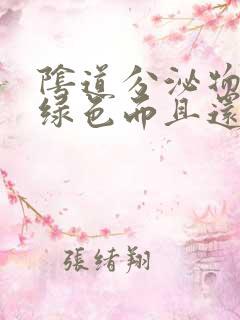 陰道分泌物
绿色而且還
張绪翔